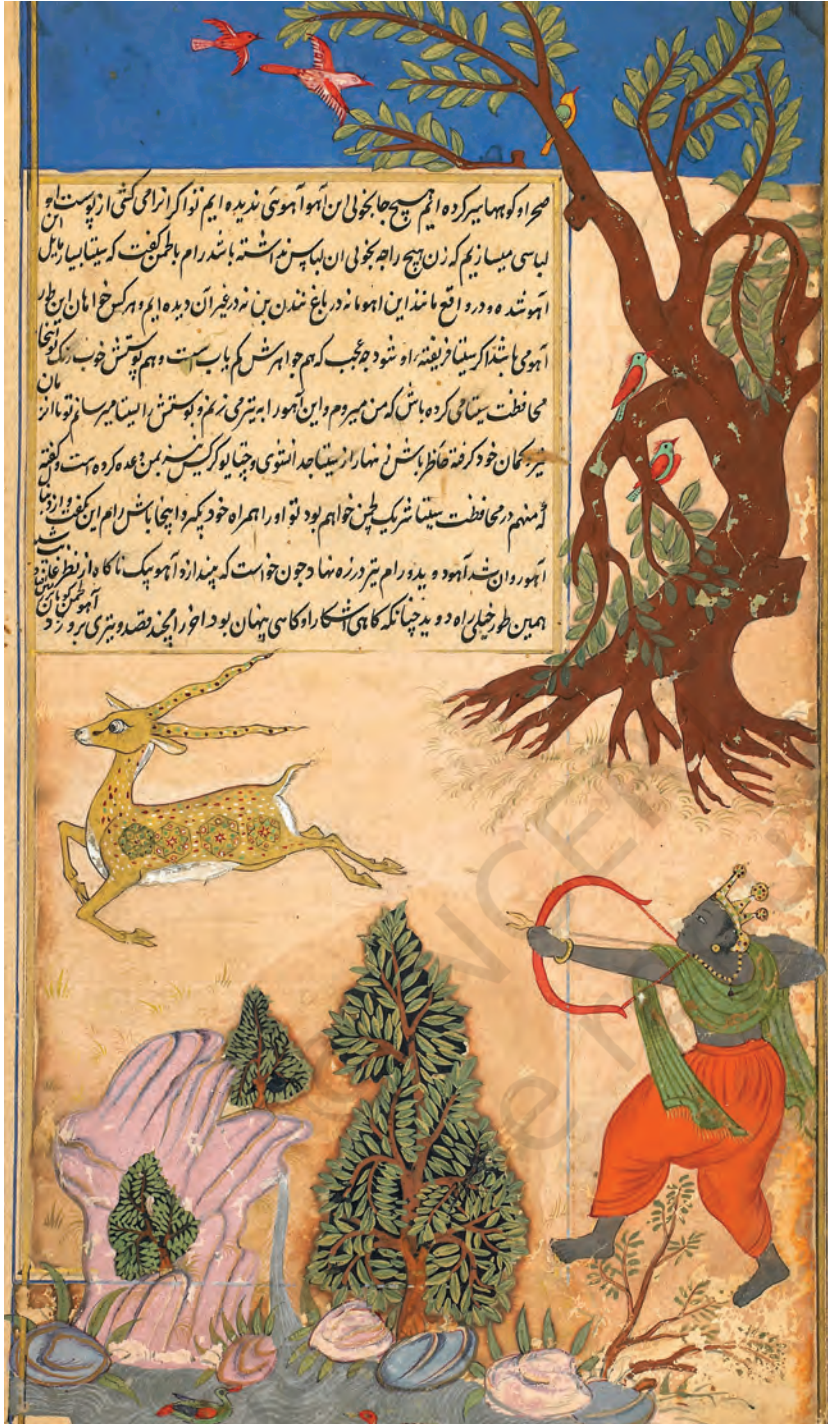 صحرا و کوهها سیر کرده ایم هیچ جا بخوبی این آهو آهوئی ندیده ایم تو اگر انرا می کشی از پوست او
لباسی میسازیم که زن هیچ راجه بخوبی ان لباس نداشته باشد رام بالچمن گفت که سیتا بسیار مایل این
آهو شده و در واقع مانند این اهو ما نه در باغ نندن بن نه در غیر آن دیده ایم و هر کس خواهان این طور
آهو می باشد اگر سیتا فریفته او شود چه عجب که هم جواهرش کم یاب است و هم پوستش خوب رنگ تو اینجا
محافظت سیتا می کرده باش که من میروم و این آهو را به تیر می زنم و پوستش را بسیتا میرسانم تو
تیر و کمان خود گرفته حاظر باش زنهار از سیتا جدا نشوی و کرکس نیز بمن وعده کرده است و گفته
که منهم در محافظت سیتا شریک لچمن خواهم بود تو او را همراه خود بگیر و اینجا باش رام این گفت و از
آهو روان شد آهو دوید و رام تیر در زه نهاد چون خواست که بیندازد آهو یک ناگاه از نظر غایب شد
همین طور خیلی راه دوید چنانکه گاهی اشکارا و گاهی پنهان بود اخر رامچند قصد و تیری برو زد
NCERT